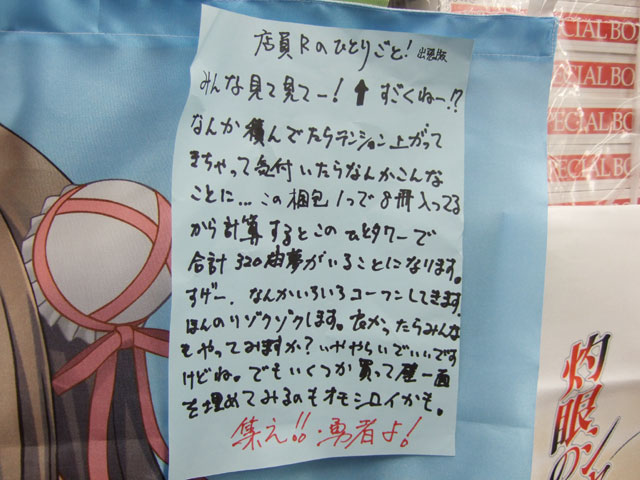 店員Rのひとりごと! 出張版
みんな見て見てー!⬆すごくねー!?
なんか積んでたらテンション上がって
きちゃって気付いたらなんかこんな
ことに...この梱包1つで8冊入ってる
から計算するとこのひとタワーで
合計320由夢がいることになります。
すげー、なんかいろいろコーフンしてきます。
ほんのりゾクゾクします。良かったらみんな
もやってみますか?いややらいでいいです
けどね。でもいくつか買って壁一面
を埋めてみるのもオモシロイかも。
集え!!勇者よ!
SPECIAL BO
SPECIAL BO
SPECIAL BO
SPECIAL BO
灼眼の